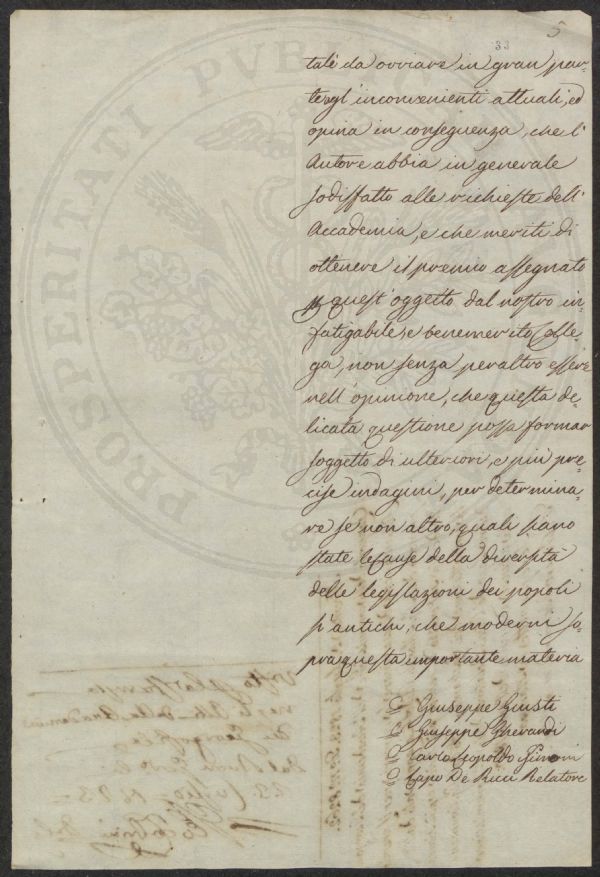 5
33
tale da ovviare in gran par-
te agl'inconvenienti attuali, ed
opina in conseguenza, che l'
Autore abbia in generale
sodisfatto alle richieste dell'
Accademia, e che meriti di
ottenere il premio assegnato
p quest'oggetto dal nostro in-
fatigabile, e benemerito Colle-
ga, non senza peraltro essere
nell'opinione, che questa de-
licata questione possa formar
soggetto di ulteriori, e più pre-
cise indagini, per determina-
re se non altro, quali siano
state le cause della diversità
delle legislazioni dei popoli
sì antichi, che moderni so-
pra questa importante materia
Giuseppe Giusti
Giuseppe Gherardi
Carlo Leopoldo Ginori
Lapo De Ricci Relatore
PROSPERITATI PVB